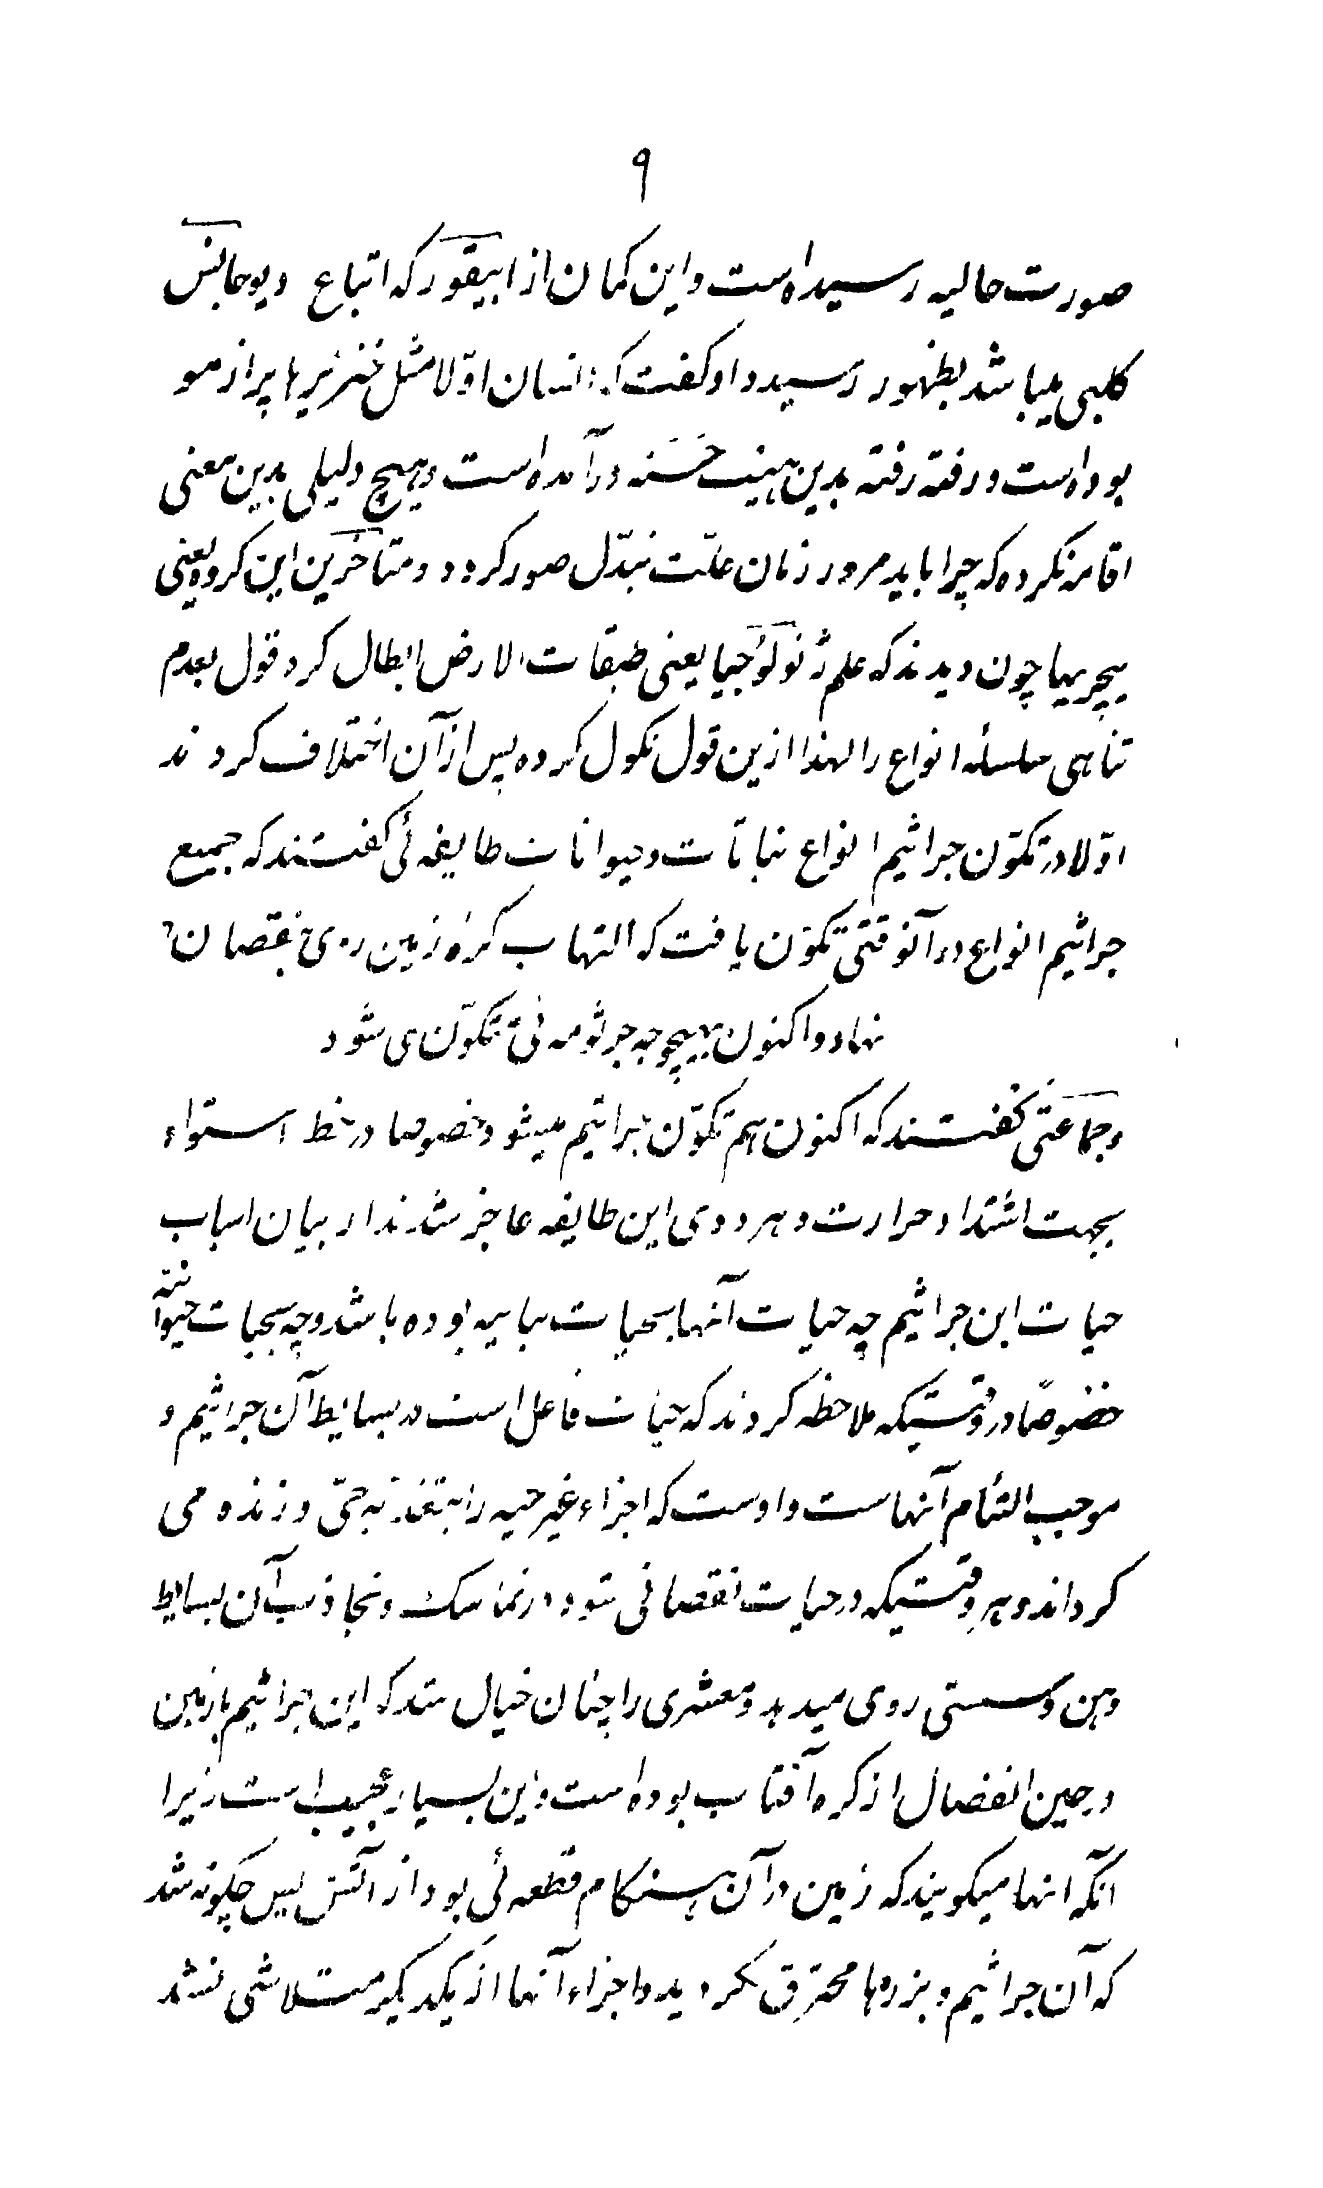 ۹
صورت حالیه رسیداه است واین کمان از ابیقور که اتباع دیوجانس
کلبی میباشد بظهور رسید و او کفت که انسان اوّلا مثل خنزیرها پر از مو
بوداه است و رفته رفته بدین هیئت حَسَنه درآمده است و هیچ دلیلی بدین معنی
اقامه نکرده که چرا باید مرور زمان علّت تبدّل صور کردد و متأخرین این کروه یعنی
نیچریها چون دیدند که علم ژئولوجیا یعنی طبقات الارض ابطال کرد قول بعدم
تناهی سلسلهٔ انواع را لهذا ازین قول نکول کرده پس از آن اختلاف کردند
اوّلا در تکوّن جراثیم انواع نباتات وحیوانات طایفه ئی کفتند که جمیع
جراثیم انواع در آنوقتی تکوّن یافت که التهاب کرهٔ زمین روی بنقصان
نهاد و اکنون بهیچوجه جرثومه ئی تکوّن می شود
وجماعتی کفتند که اکنون هم تکوّن جراثیم میشود خصوصا در خط استواء
بجهت اشتداد حرارت و هر دوی این طایفه عاجز شدند از بیان اسباب
حیات این جراثیم چه حیات آنها بحیات نباتیه بوده باشد و چه بحیات حیوانیّه
خصوصًا در وقتیکه ملاحظه کردند که حیات فاعل است در بسایط آن جراثیم و
موجب التئام آنهاست واوست که اجزاء غیر حیه را بتغذیه حیّ و زنده می
کرداند و هر وقتیکه در حیات نقصانی شود در تماسک و تجاذب آن بسایط
وهن و سستی روی میدهد و معشری را چنان خیال شد که این جراثیم با زمین
در حین انفصال از کره آفتاب بوده است و این بسیار عجیب است زیرا
آنکه انها میکویند که زمین در آن هنکام قطعه ئی بود از آتش پس چکونه شد
که آن جراثیم و بزرها محترق نکردیده و اجزاء آنها از یکدیکر متلاشی نشد